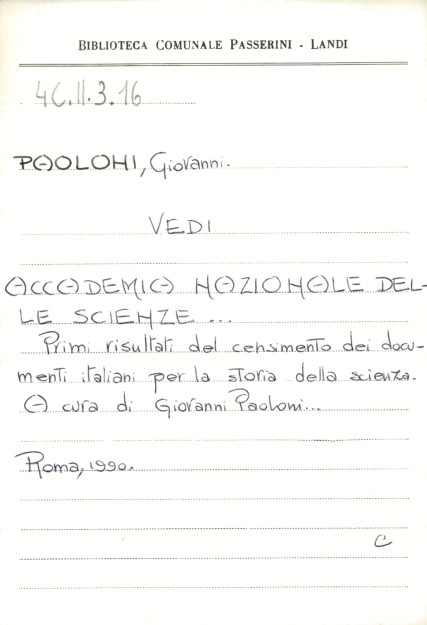 BIBLIOTECA COMUNALE PASSERINI - LANDI
4C.II.3.16
PAOLONI, Giovanni.
VEDI
ACCADEMIA NAZIONALE DEL-
LE SCIENZE...
Primi risultati del censimento dei docu-
menti italiani per la storia della scienza.
A cura di Giovanni Paoloni...
Roma, 1990.
C